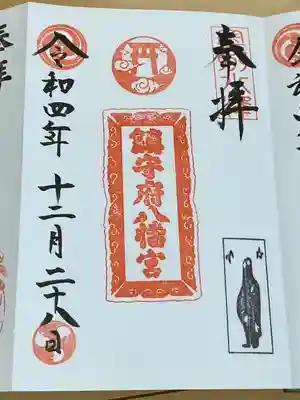 奉拝
鎮守府八幡宮
令和四年十二月二十八日
奉拝